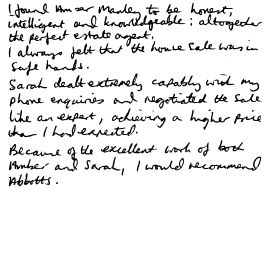 I found Amber Manley to be honest,
intelligent and knowledgeable; altogether
the perfect estate agent.
I always felt that the house sale was in
safe hands.
Sarah dealt extremely capably with my
phone enquiries and negotiated the sale
like an expert, achieving a higher price
than I had expected.
Because of the excellent work of both
Amber and Sarah, I would recommend
Abbotts.